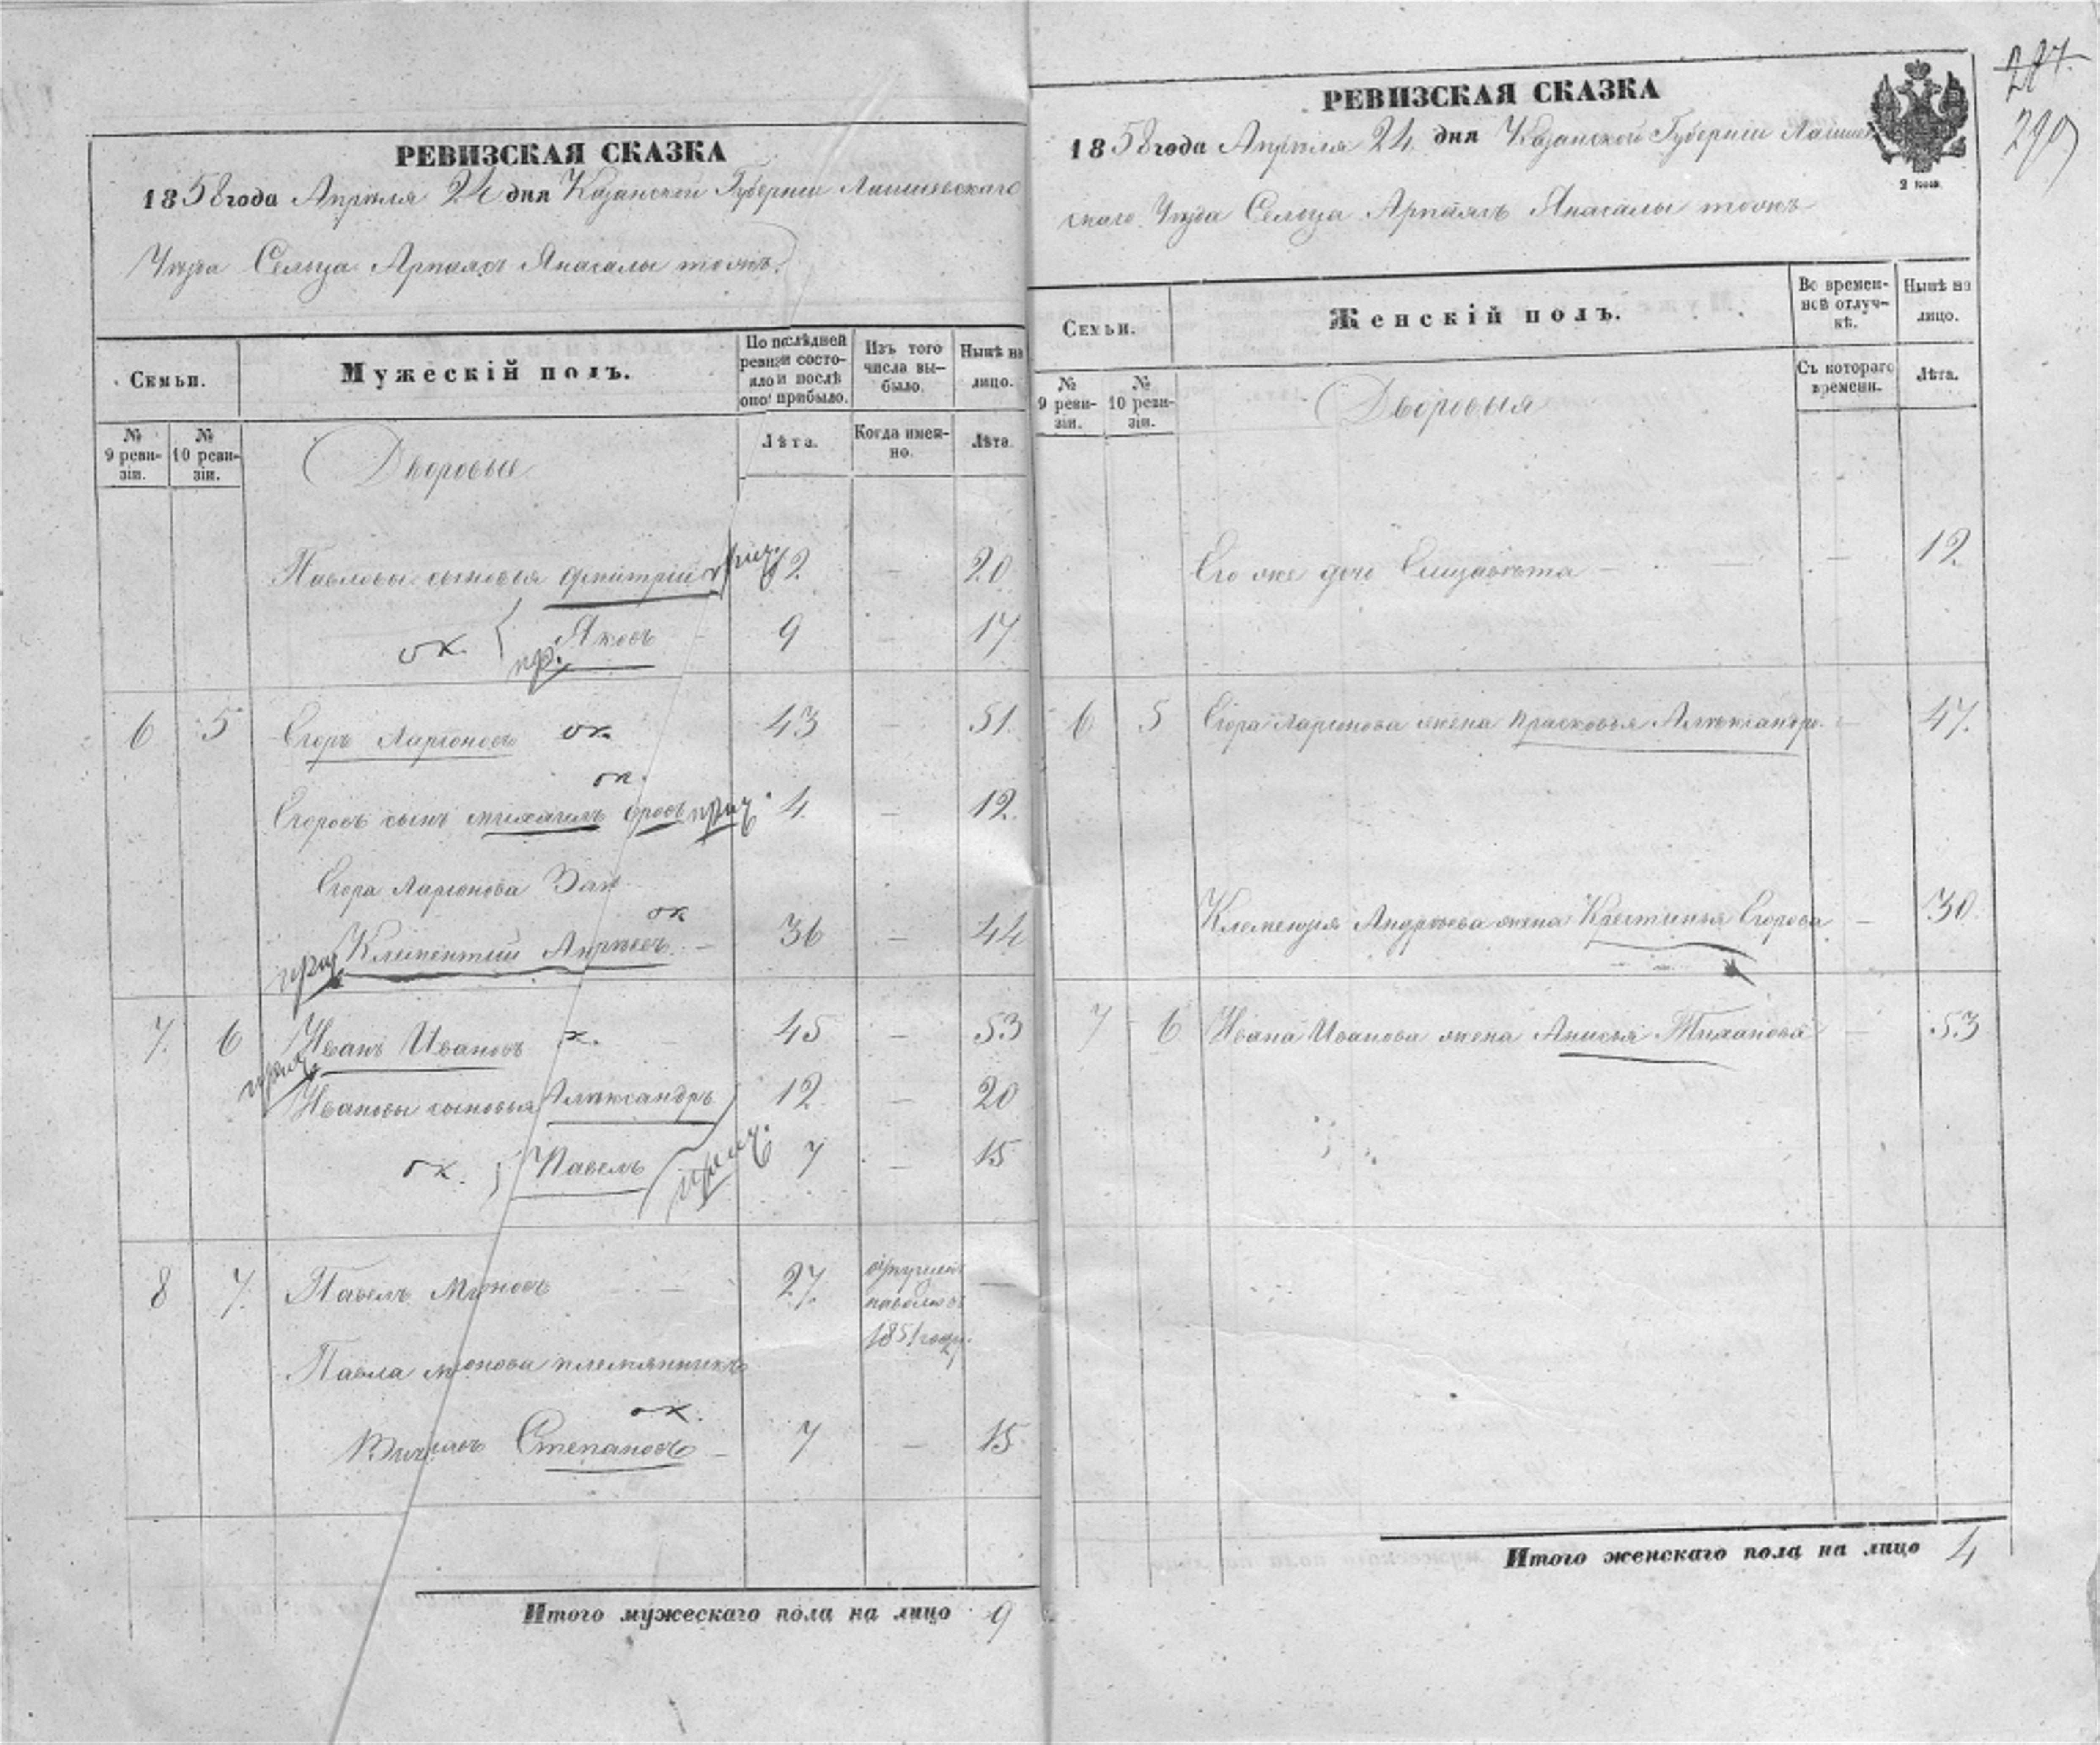 РЕВИЗСКАЯ СКАЗКА
1858 года Апреля 24 дня Казанской Губернии Лаишевскаго
Уезда Сельца Арпаяз Янасалы тожъ.
Семьи.
Мужескій полъ.
По послѣдней ревизіи состояло и послѣ оной прибыло.
Изъ того числа выбыло.
Нынѣ на лицо.
№ 9 ревизіи.
№ 10 ревизіи.
Дворовые
Лѣта.
Когда именно.
Лѣта.
Павловы сыновья Дмитрій 12 — 20
ок. Яковъ — 9 — 17
пр.
6 5 Егоръ Ларіоновъ ок 43 — 51.
ок.
Егоровъ сынъ Михаилъ 4. — 12.
Егора Ларіонова Зят
ок
Климентий Андреевъ — 36 — 44
7. 6 Иванъ Ивановъ х. 45 — 53
Ивановы сыновья Александръ 12 — 20
ок. Павелъ 7 — 15
8 7. Павелъ Мироновъ 27. отпущенъ на волю въ 1851 году. —
Павла Миронова племянникъ
ок.
Степановъ — 7 — 15
Итого мужескаго пола на лицо 9
287.
290
РЕВИЗСКАЯ СКАЗКА
1858 года Апреля 24 дня Казанской Губерніи Лаише
2 коп.
скаго Уезда Сельца Арпаязъ Янасалы тожъ
Семьи.
Женскій полъ.
Во временной отлучкѣ.
Нынѣ на лицо.
№ 9 ревизіи.
№ 10 ревизіи.
Дворовыя
Съ котораго времени.
Лѣта.
Его же дочь Елизавета — 12
6 5 Егора Ларіонова жена Прасковья Александро. — 47.
Клеменţiя Андреева жена Крестинья Егорова — 30
7 6 Ивана Иванова жена Анисья Тиханова — 53
Итого женскаго пола на лицо 4